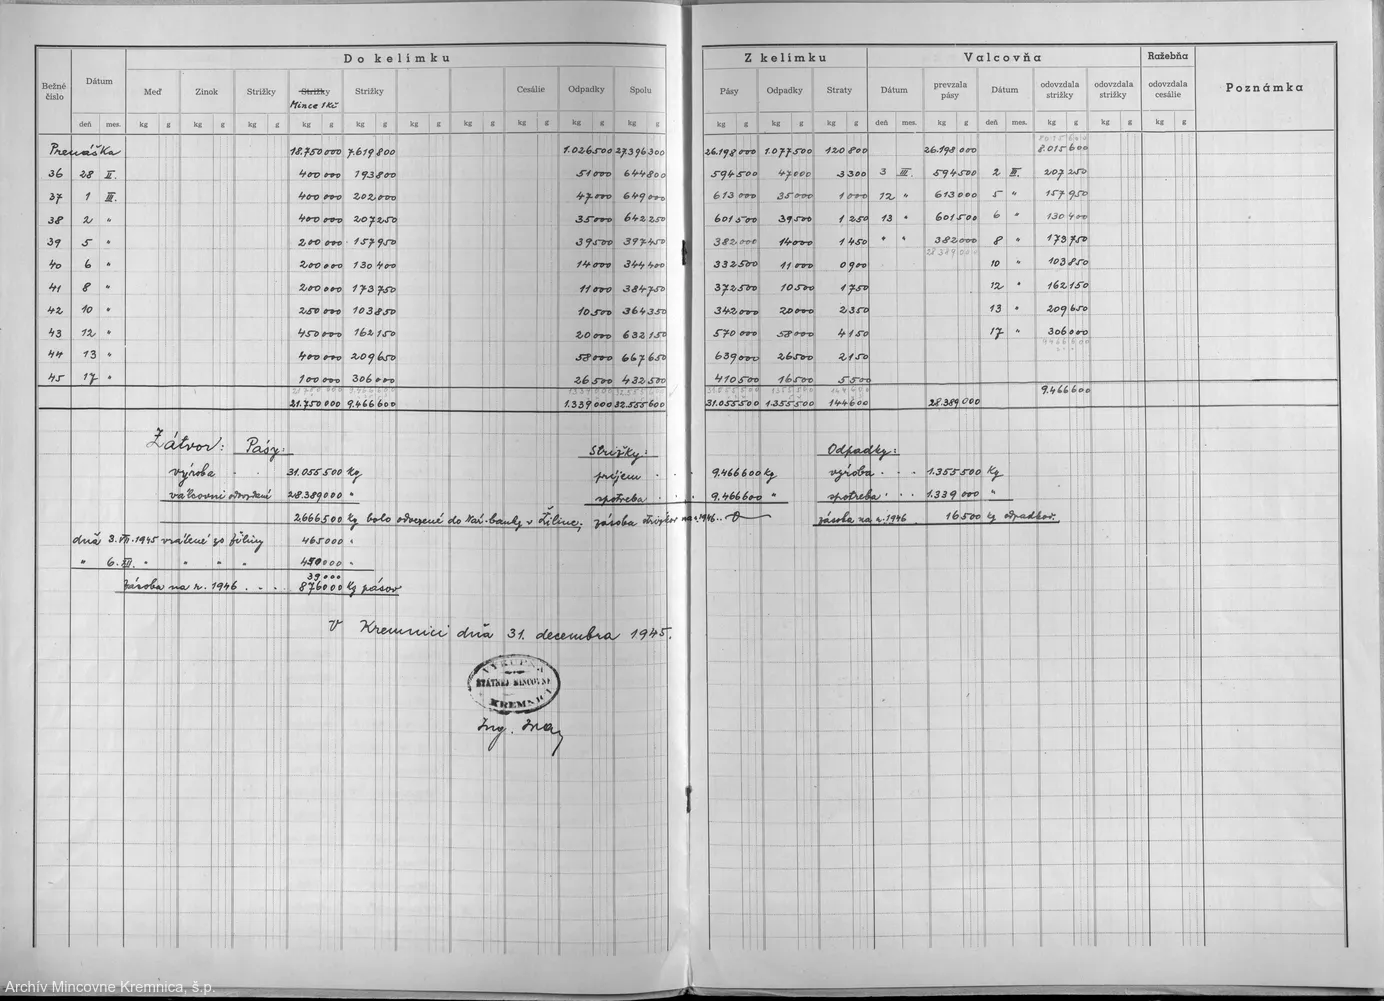 Do kelímku
Z kelímku Valcovňa Ražebňa
Bežné číslo Dátum Meď Zinok Strižky Strižky Mince 1 Kč Strižky Cesálie Odpadky Spolu
Pásy Odpadky Straty Dátum prevzala pásy Dátum odovzdala strižky odovzdala strižky odovzdala cesálie Poznámka
deň mes. kg g kg g kg g kg g kg g kg g kg g kg g kg g kg g
kg g kg g kg g deň mes. kg g deň mes. kg g kg g kg g
8 015 600
Prenáška 18.750 000 7.619 800 1.026 500 27.396 300 26.198 000 1.077 500 120 800 26.198 000 8.015 600
36 28 II. 400 000 193 800 51 000 644 800 594 500 47 000 3 300 3 III. 594 500 2 III. 207 250
37 1 III. 400 000 202 000 47 000 649 000 613 000 35 000 1 000 12 " 613 000 5 " 157 950
38 2 " 400 000 207 250 35 000 642 250 601 500 39 500 1 250 13 " 601 500 6 " 130 400
39 5 " 200 000 157 950 39 500 397 450 382 000 14 000 1 450 " " 382 000 8 " 173 750
28 389 000
40 6 " 200 000 130 400 14 000 344 400 332 500 11 000 0 900 10 " 103 850
41 8 " 200 000 173 750 11 000 384 750 372 500 10 500 1 750 12 " 162 150
42 10 " 250 000 103 850 10 500 364 350 342 000 20 000 2 350 13 " 209 650
43 12 " 450 000 162 150 20 000 632 150 570 000 58 000 4 150 17 " 306 000
9 466 600
44 13 " 400 000 209 650 58 000 667 650 639 000 26 500 2 150
45 17 " 100 000 306 000 26 500 432 500 410 500 16 500 5 500
9.466 600
21.750 000 9.466 600 1.339 000 32.555 600 31.055 500 1.355 500 144 600 28.389 000
Zátvor: Pásy: Strižky: Odpadky:
výroba . . 31.055 500 kg príjem . . 9.466 600 kg výroba . . . 1.355 500 kg
valcovni odovzdané 28.389 000 " spotreba . . . 9.466 600 " spotreba . . . 1.339 000 "
2666 500 kg bolo odvezené do Nár. banky v Žiline, zásoba strižkov na r. 1946 .. 0 zásoba na r. 1946 16 500 kg odpadkov.
dňa 3.VII.1945 vrátené zo Žiliny 465 000 "
" 6. XII. " " " " 450 000 "
39 000
zásoba na r. 1946 . . . . 876 000 kg pásov
V Kremnici dňa 31. decembra 1945.
VÝKUPŇA
ŠTÁTNEJ MINCOVNE
KREMNICA
Ing.
Archív Mincovne Kremnica, š.p.